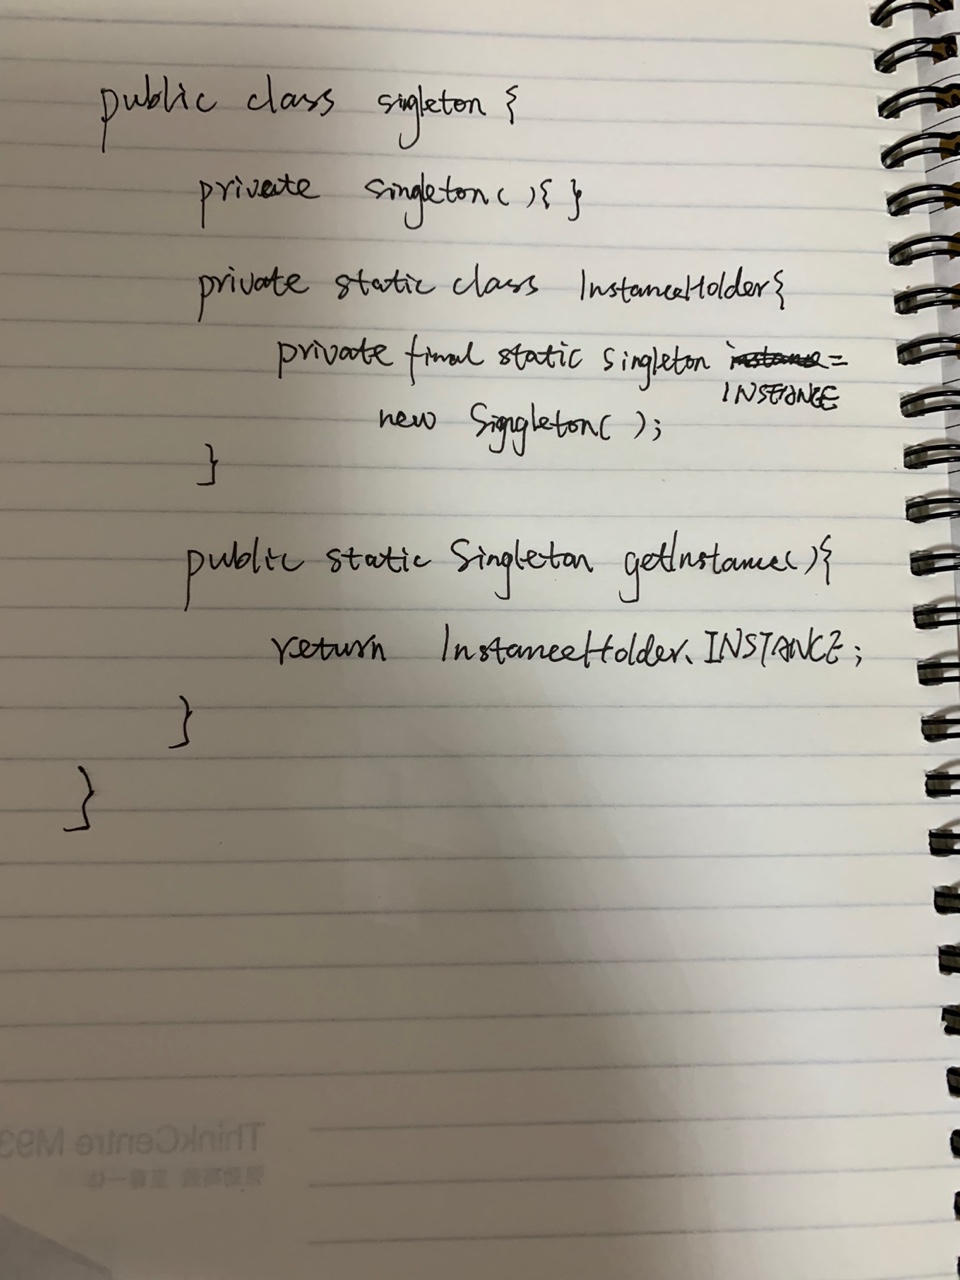 public class singleton {
private singleton(){ }
private static class InstanceHolder{
private final static singleton instance =
INSTANCE
new Signgleton( );
}
public static Singleton getInstance(){
return InstanceHolder.INSTANCE;
}
}
ThinkCentre M93